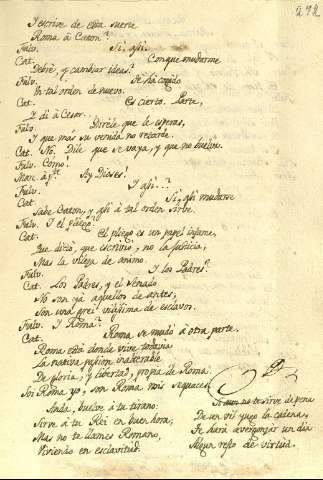 272
Y escrive de esta suerte
Roma à Caton?
Fulv. Si, asi.
Cat. Conque mudarme
Debrè, y cambiar ideas?
Fulv. Se ha cogido
Un tal orden de nuevo.
Cat. Es cierto. Parte,
Y di à Cesar.
Fulv. Dirèle que le esperas,
Y que mas su venida no retarde.
Cat. No. Dile que se vaya, y que no buelva.
Fulv. Como!
Mar. ap.te Ay Dioses!
Fulv. Y asi..?
Cat. Si, asi mudarse
Sabe Caton, y asi à tal orden sirve.
Fulv. Y el pliego?
Cat. El pliego es un papel infame,
Que dictò, que escriviò, no la justicia,
Mas la vileza de animo.
Fulv. Y los Padres?
Cat. Los Padres, y el Senado
No son yà aquellos de antes;
Son una grei vilisima de esclavos.
Fulv. Y Roma?
Cat. Roma se mudò à otra parte.
Roma està donde vive todavia
La nativa pasion inalterable
De gloria, y libertad, propia de Roma.
Soi Roma yo, son Roma mis sequaces.
Anda, buelve à tu tirano:
Sirve à tu Rei en buen hora;
Mas no te llames Romano,
Viviendo en esclavitud.
Si no te sirve de pena
De un vil yugo la cadena,
Te harà avergonzar un dia
Algun resto de virtud.